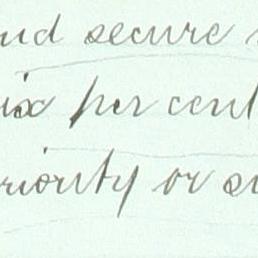 nd secure
ix per cent
riority or su